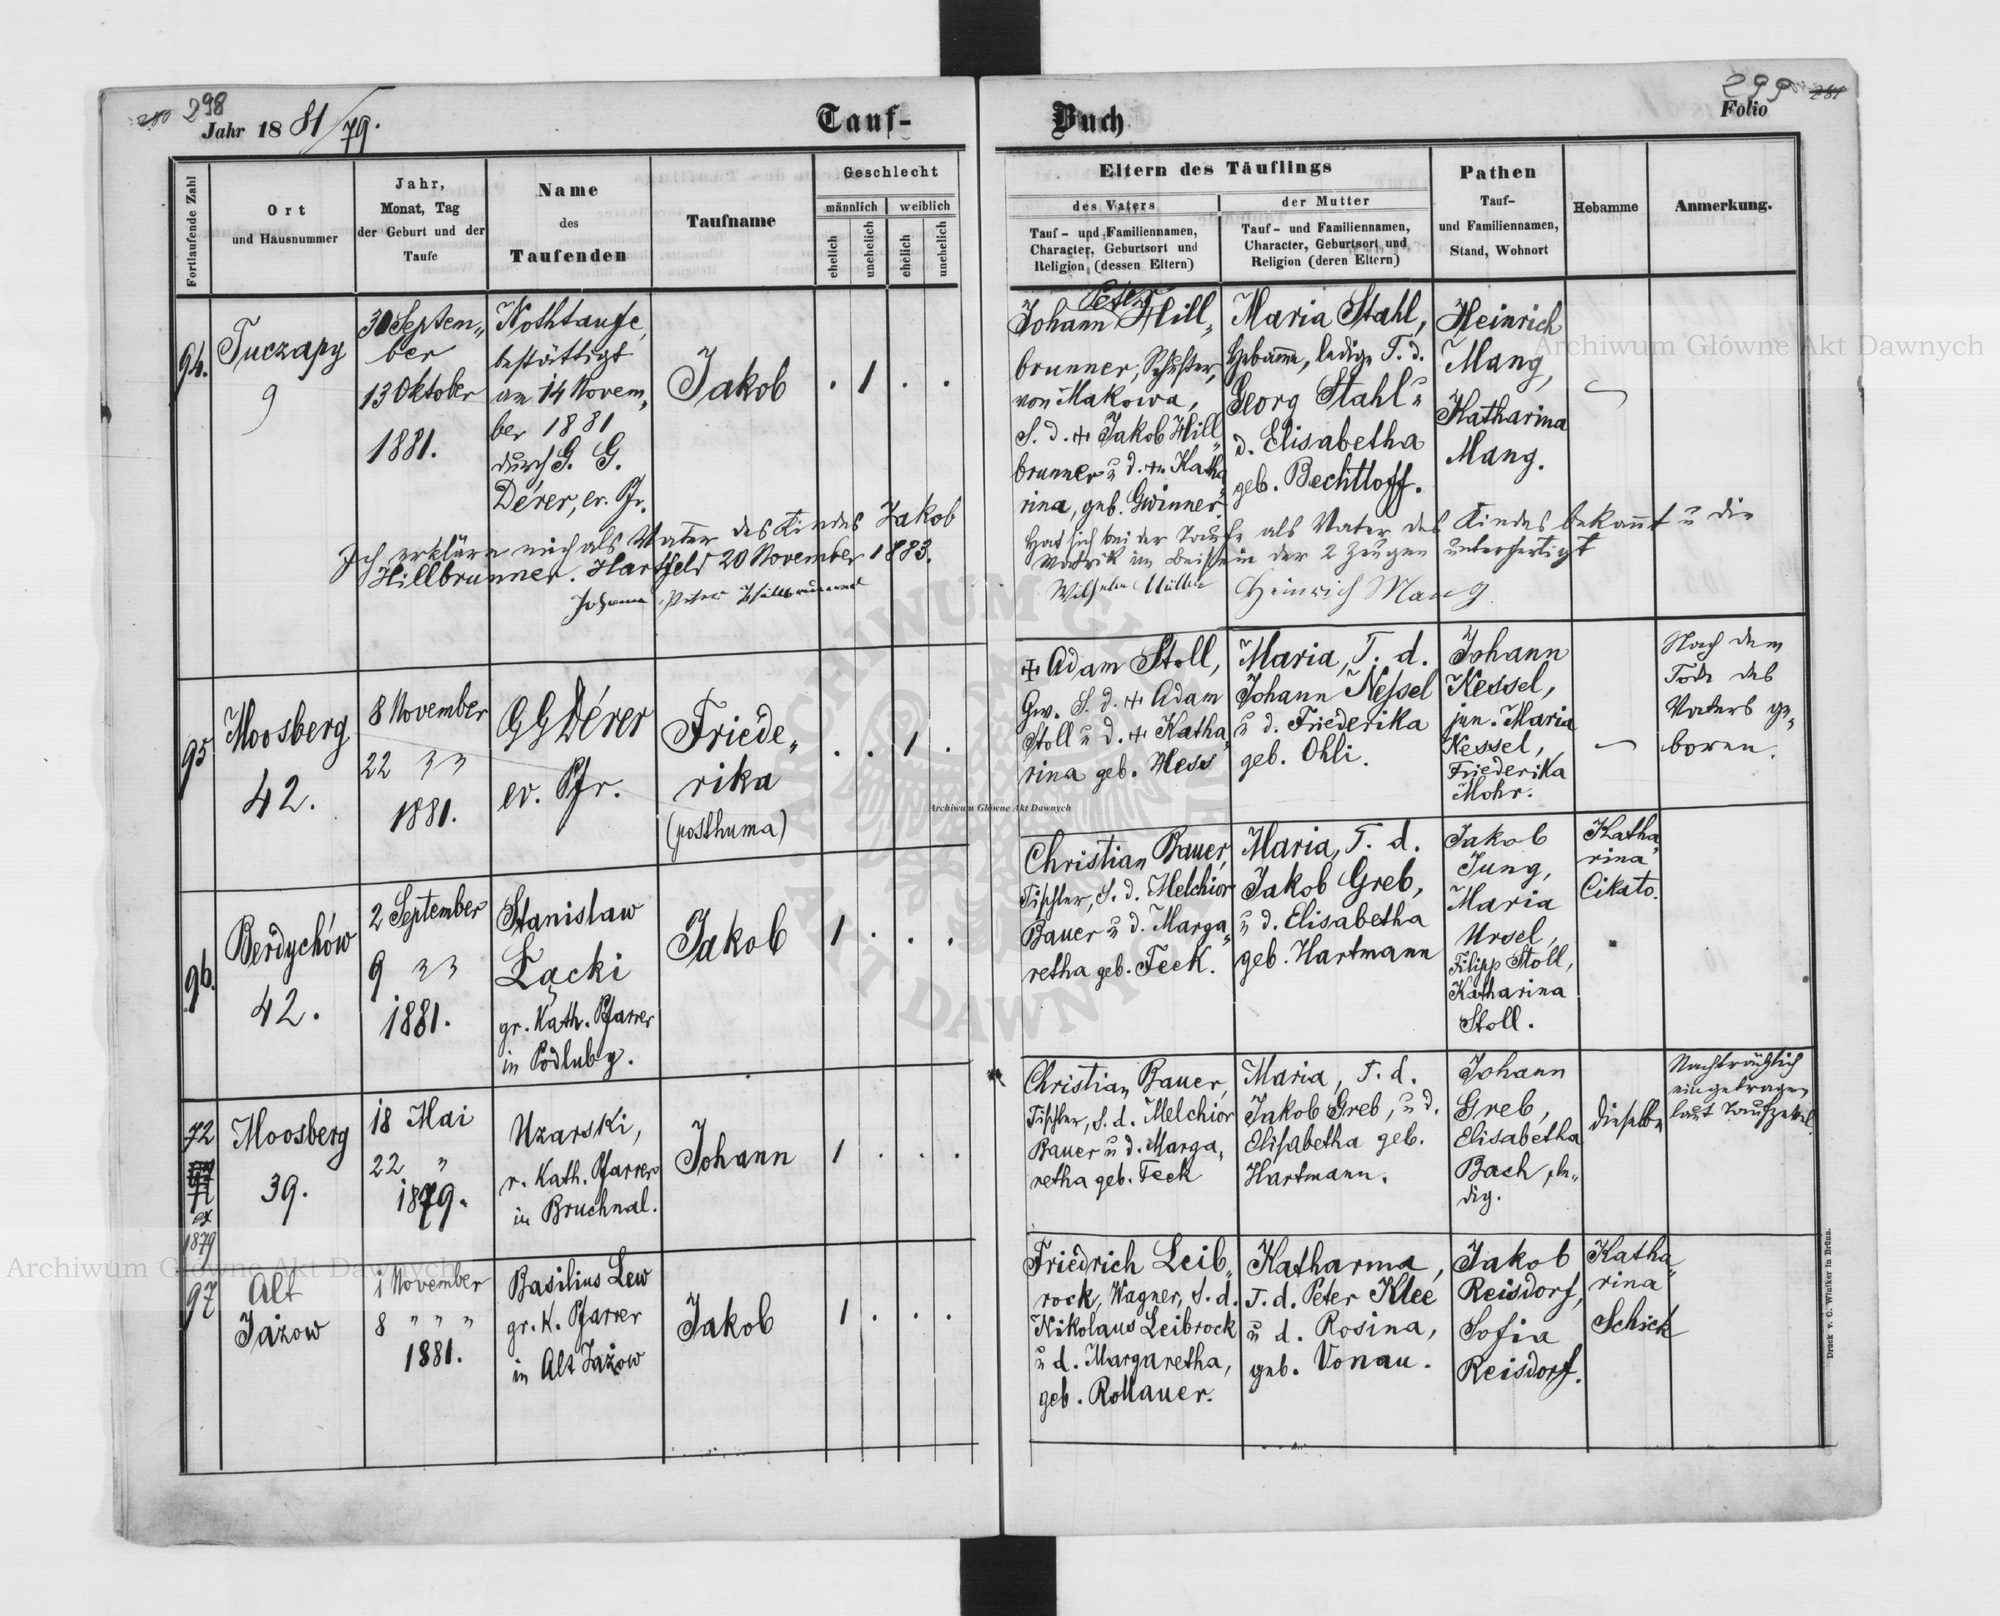 298
Jahr 1881/79.
Tauf-
Buch
299
Folio
Fortlaufende Zahl
Ort
und Hausnummer
Jahr,
Monat, Tag
der Geburt und der
Taufe
Name
des
Taufenden
Taufname
Geschlecht
männlich
weiblich
ehelich
unehelich
ehelich
unehelich
Eltern des Täuflings
des Vaters
Tauf- und Familiennamen,
Character, Geburtsort und
Religion (dessen Eltern)
der Mutter
Tauf- und Familiennamen,
Character, Geburtsort und
Religion (deren Eltern)
Pathen
Tauf-
und Familiennamen,
Stand, Wohnort
Hebamme
Anmerkung.
94.
Tuczapy
9
30 Septem„
ber
13 Oktober
1881.
Nothtaufe,
bestättigt
am 14 Novem„
ber 1881
durch G. G.
Dérer, ev. Pfr.
Jakob
. 1 . .
Peter
Johann Hill„
brunner, Schuster,
von Makowa,
S. d. + Jakob Hill„
brunner u d. + Katha„
rina, geb. Gwinner
Maria Stahl,
Hebamme, ledige T. d.
Georg Stahl u
d. Elisabetha
geb. Bechtloff.
Heinrich
Mang,
Katharina
Mang.
Ich erkläre mich als Vater des Kindes Jakob
Hillbrunner. Hartfeld 20 November 1883.
Johann Peter Hillbrunner
Hat sich bei der Taufe als Vater des Kindes bekannt u die
Matrik im Beisein der 2 Zeugen unterfertigt
Wilhelm Müller
Heinrich Mang
95
Moosberg
42.
8 November
22 " "
1881.
GG Dérer
ev. Pfr.
Friede„
rika
(posthuma)
. . 1 .
+ Adam Stoll,
Gw. S. d. + Adam
Stoll u d. + Katha„
rina geb. Hess
Maria, T. d.
Johann Nessel
u d. Friederika
geb. Ohli.
Johann
Kessel,
jun. Maria
Kessel,
Friederika
Mohr.
Nach dem
Tode des
Vaters ge„
boren.
96.
Berdychów
42.
2 September
9 " "
1881.
Stanislaw
Łącki
gr. Kath. Pfarrer
in Podluby.
Jakob
1 . . .
Christian Bauer,
Tischler, S. d. Melchior
Bauer u d. Marga„
retha geb. Feck.
Maria, T. d.
Jakob Greb,
u d. Elisabetha
geb. Hartmann
Jakob
Jung,
Maria
Ursel,
Filipp Stoll,
Katharina
Stoll.
Katha„
rina
Cikato.
72
ex
1879
Moosberg
39.
18 Mai
22 "
1879.
Uzarski,
r. Kath. Pfarrer
in Bruchnal.
Johann
1 . . .
Christian Bauer,
Tischler, S. d. Melchior
Bauer u d. Marga„
retha geb. Feck
Maria, T. d.
Jakob Greb, u d.
Elisabetha geb.
Hartmann.
Johann
Greb,
Elisabetha
Bach, le„
dig.
dieselbe
Nachträglich
eingetragen
laut Taufzettel.
97
Alt
Jażow
1 November
8 " " "
1881.
Basilius Lew
gr. K. Pfarrer
in Alt Jażow
Jakob
1 . . .
Friedrich Leib„
rock, Wagner, S. d.
Nikolaus Leibrock
u d. Margaretha,
geb. Rollauer.
Katharina,
T. d. Peter Klee
u d. Rosina,
geb. Vonau.
Jakob
Reisdorf,
Sofia
Reisdorf.
Katha„
rina
Schick
Druck v. C. Winiker in Brünn.
Archiwum Główne Akt Dawnych
Archiwum Główne Akt Dawnych
Archiwum Główne Akt Dawnych